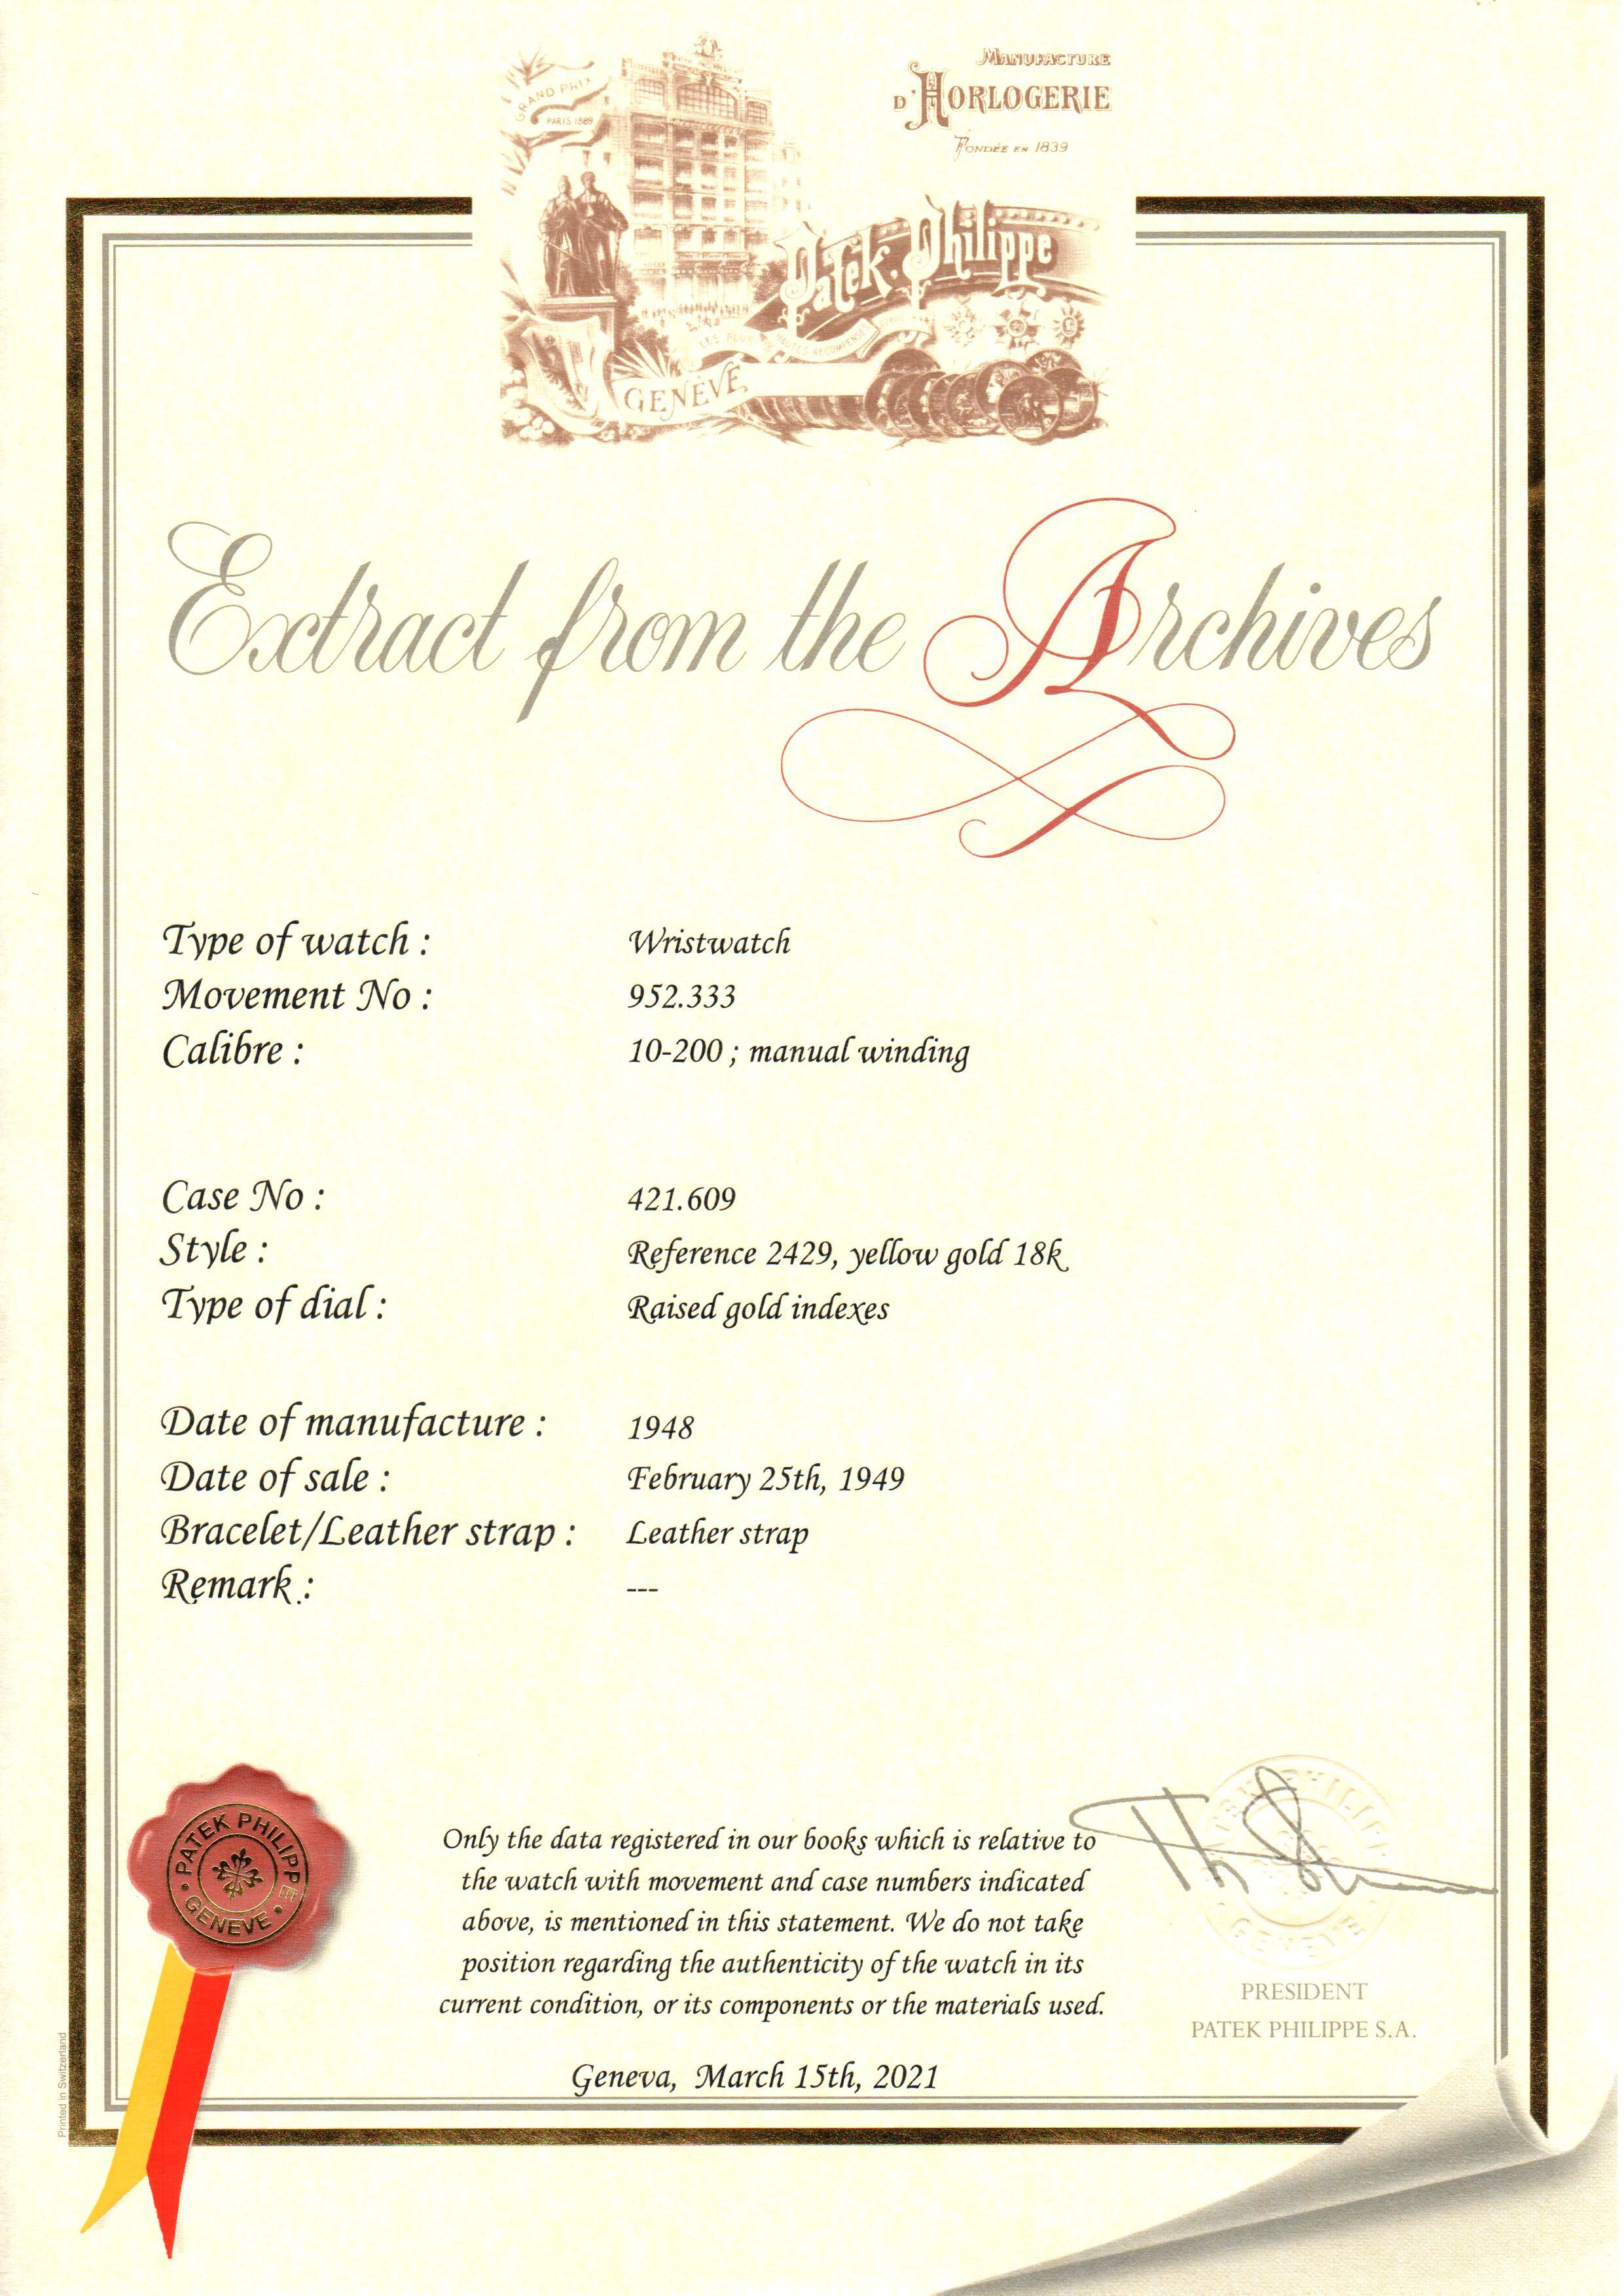 GRAND PRIX
PARIS 1889
MANUFACTURE
D'HORLOGERIE
FONDÉE EN 1839
Patek Philippe
LES PLUS HAUTES RECOMPENSES
GENÈVE
Extract from the Archives
Type of watch : Wristwatch
Movement No : 952.333
Calibre : 10-200 ; manual winding
Case No : 421.609
Style : Reference 2429, yellow gold 18k
Type of dial : Raised gold indexes
Date of manufacture : 1948
Date of sale : February 25th, 1949
Bracelet/Leather strap : Leather strap
Remark : ---
PATEK PHILIPPE
GENEVE
Only the data registered in our books which is relative to
the watch with movement and case numbers indicated
above, is mentioned in this statement. We do not take
position regarding the authenticity of the watch in its
current condition, or its components or the materials used.
PATEK PHILIPPE
GENEVE
PRESIDENT
PATEK PHILIPPE S.A.
Geneva, March 15th, 2021
Printed in Switzerland